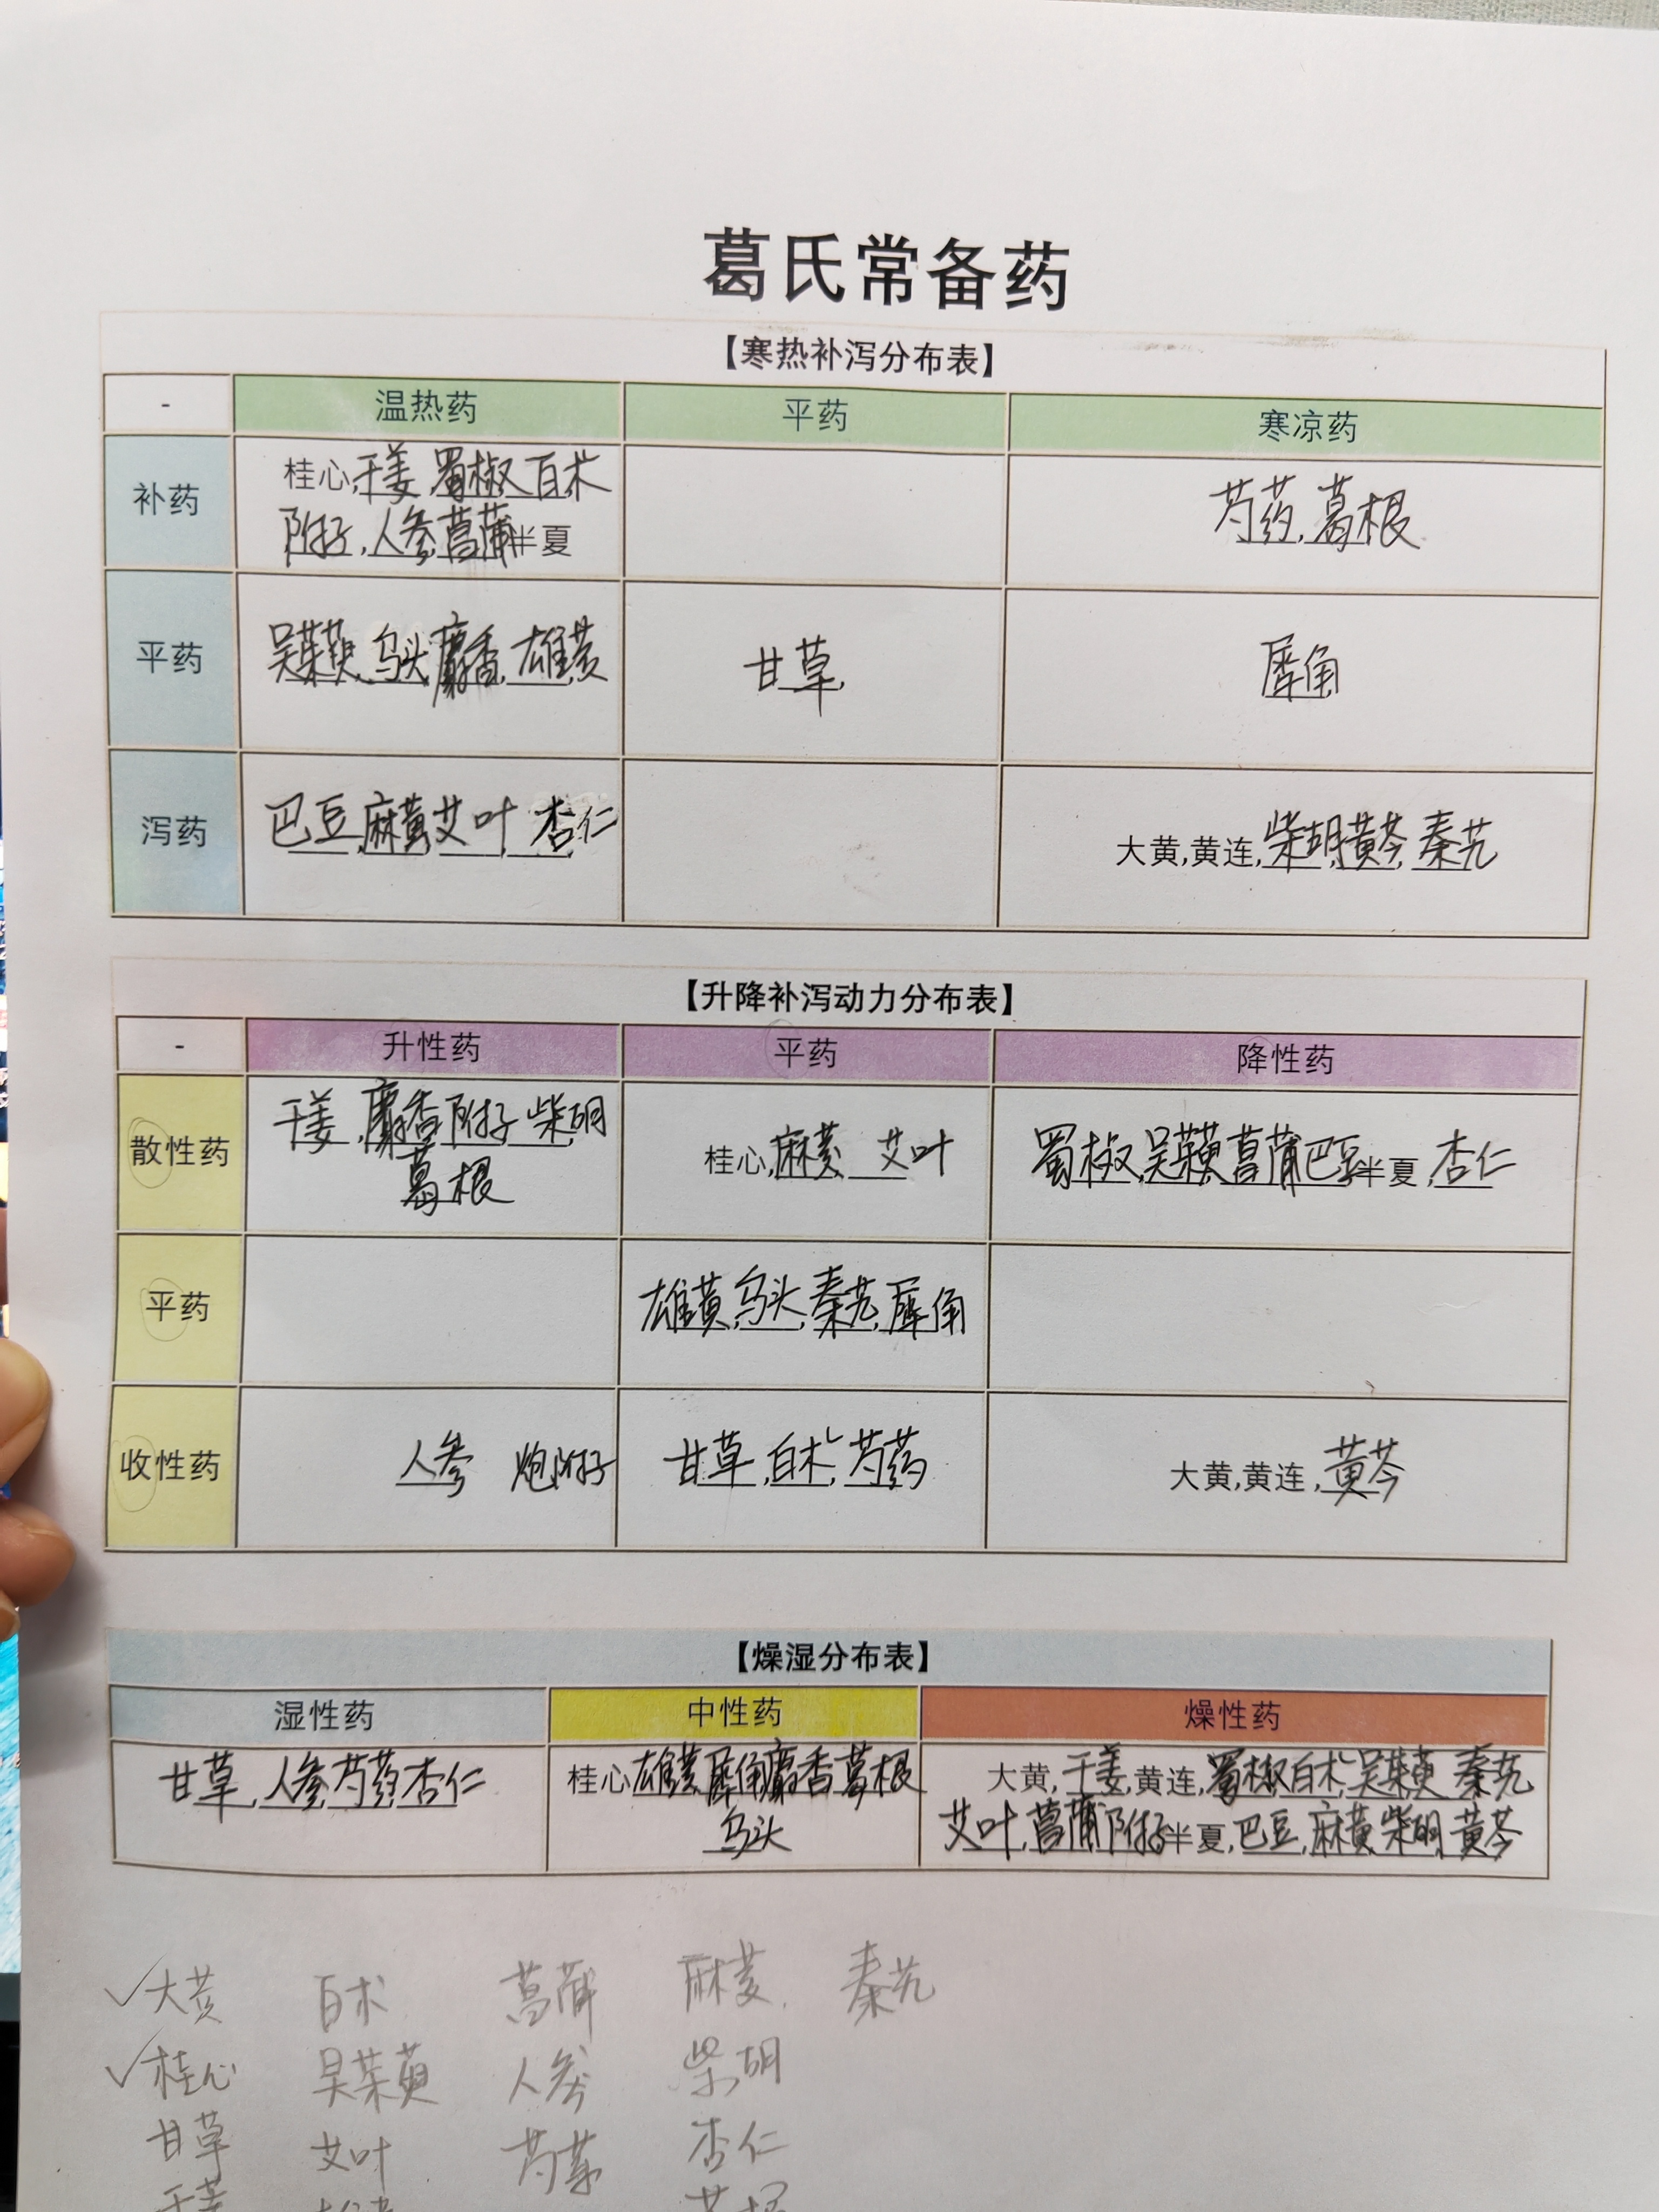 葛氏常备药
【寒热补泻分布表】
- 温热药 平药 寒凉药
补药 桂心,干姜,蜀椒,白术
附子,人参,菖蒲半夏
芍药,葛根
平药 吴茱萸,乌头,麝香,雄黄 甘草, 犀角
泻药 巴豆,麻黄,艾叶,杏仁 大黄,黄连,柴胡,黄芩,秦艽
【升降补泻动力分布表】
- 升性药 平药 降性药
散性药 干姜,麝香,附子,柴胡
葛根
桂心,麻黄,艾叶 蜀椒,吴茱萸,菖蒲,巴豆半夏,杏仁
平药 雄黄,乌头,秦艽,犀角
收性药 人参 炮附子 甘草,白术,芍药 大黄,黄连,黄芩
【燥湿分布表】
湿性药 中性药 燥性药
甘草,人参,芍药,杏仁 桂心,雄黄,犀角,麝香,葛根
乌头
大黄,干姜,黄连,蜀椒,白术,吴茱萸,秦艽
艾叶,菖蒲,附子半夏,巴豆,麻黄,柴胡,黄芩
✓大黄 白术 菖蒲 麻黄 秦艽
✓桂心 吴茱萸 人参 柴胡
甘草 艾叶 芍药 杏仁
干姜